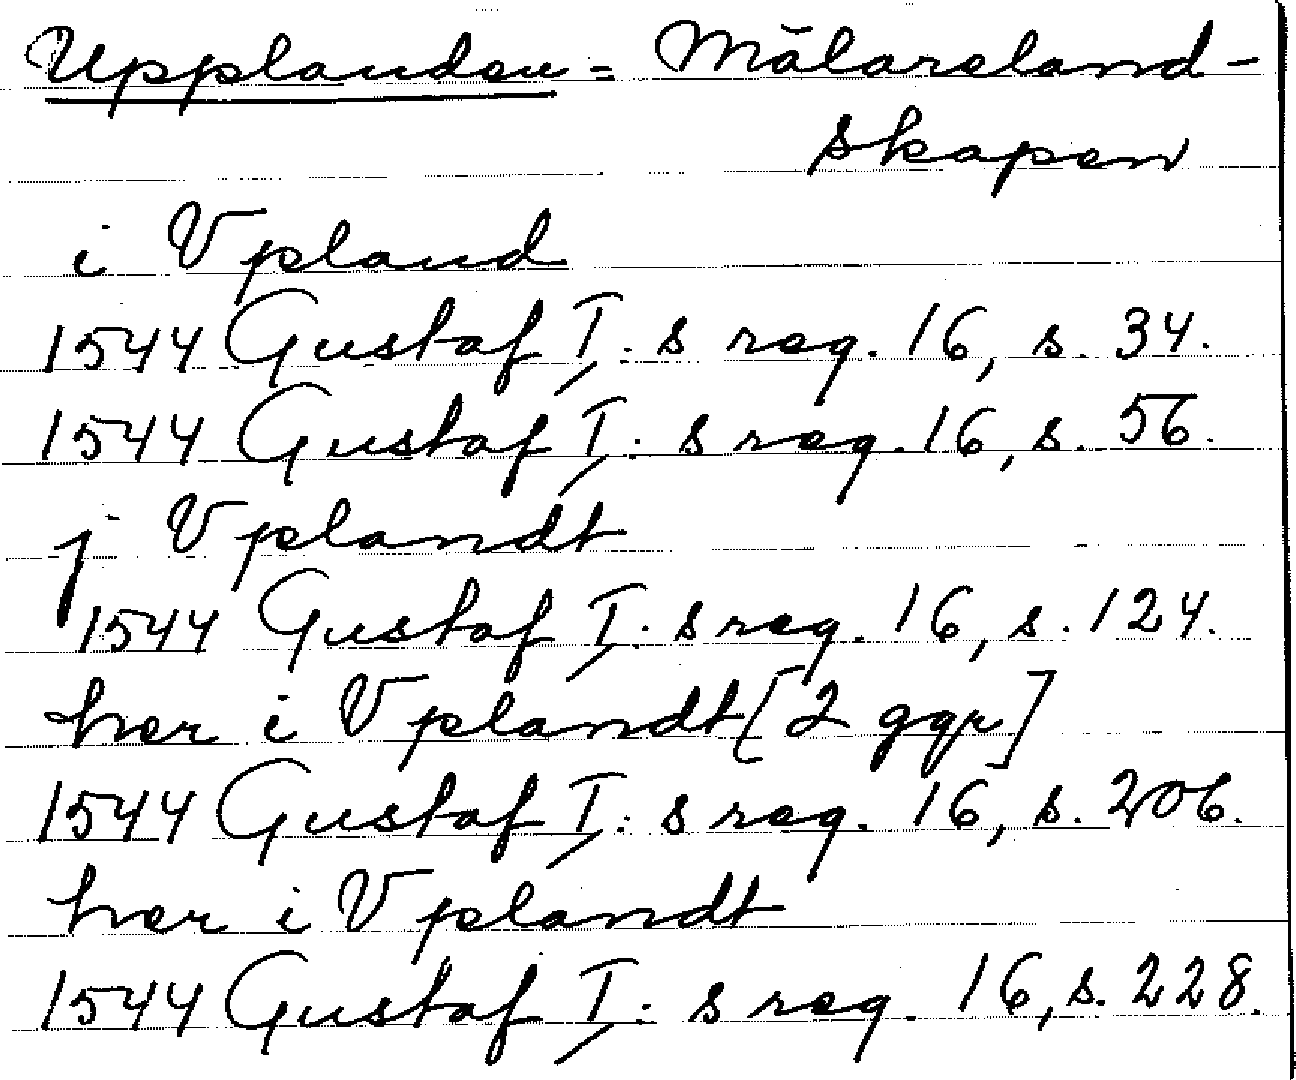 Upplanden = Mälareland-
skapen
i Vpland
1544 Gustaf I:s reg. 16, s. 34.
1544 Gustaf I:s reg. 16, s. 56.
j Vplandt
1544 Gustaf I:s reg. 16, s. 124.
her i Vplandt [2 ggr]
1544 Gustaf I:s reg. 16, s. 206.
her i Vplandt
1544 Gustaf I:s reg. 16, s. 228.